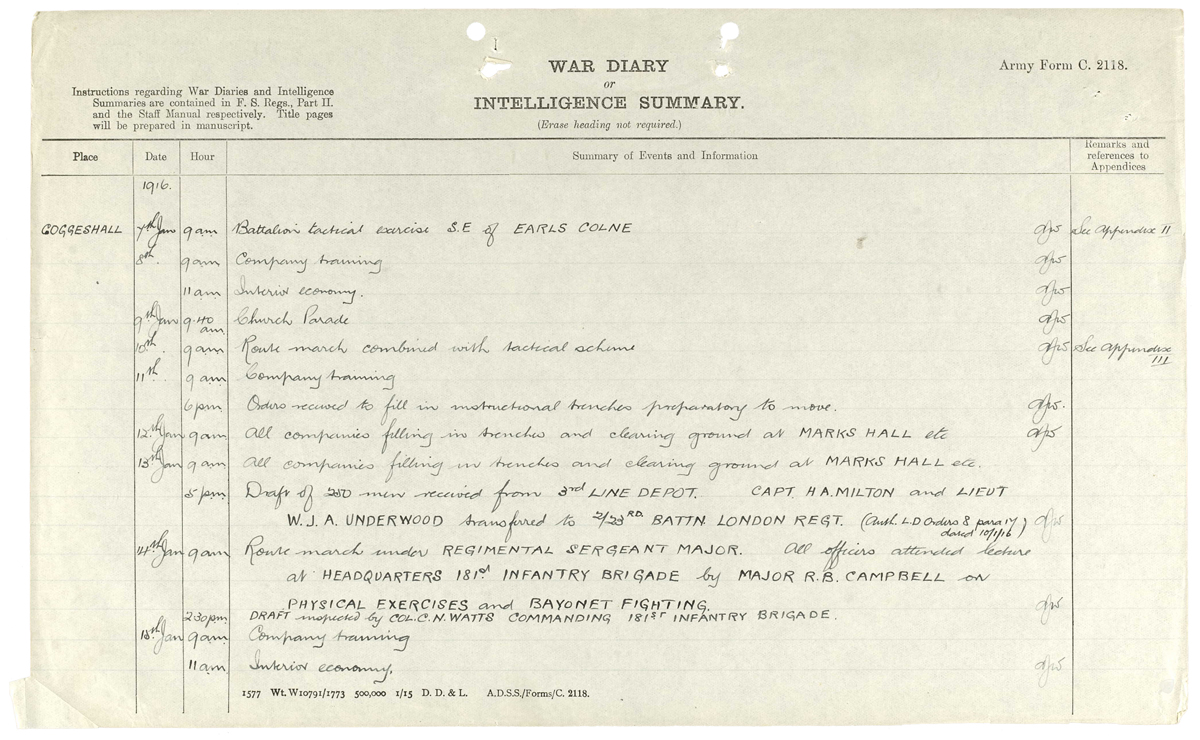 WAR DIARY
or
INTELLIGENCE SUMMARY.
(Erase heading not required.)
Army Form C. 2118.
Instructions regarding War Diaries and Intelligence
Summaries are contained in F. S. Regs., Part II.
and the Staff Manual respectively. Title pages
will be prepared in manuscript.
Place Date Hour Summary of Events and Information Remarks and references to Appendices
1916.
COGGESHALL 7th Jan 9 am Battalion tactical exercise S.E of EARLS COLNE See Appendix II
8th. 9 am Company training
11 am Interior economy.
9th Jan 9.40 am Church Parade
10th. 9 am Route march combined with tactical scheme See Appendix III
11th. 9 am Company training
6 pm Orders received to fill in instructional trenches preparatory to move.
12th Jan 9 am All companies filling in trenches and clearing ground at MARKS HALL etc
13th Jan 9 am All companies filling in trenches and clearing ground at MARKS HALL etc.
5 pm Draft of 250 men received from 3rd LINE DEPOT. CAPT. HAMILTON and LIEUT
W.J.A. UNDERWOOD transferred to 2/23RD. BATTN. LONDON REGT. (Auth. L.D Orders 8 para 17) dated 10/1/16
14th Jan 9 am Route march under REGIMENTAL SERGEANT MAJOR. All officers attended lecture
at HEADQUARTERS 181st INFANTRY BRIGADE by MAJOR R.B. CAMPBELL on
PHYSICAL EXERCISES and BAYONET FIGHTING.
2.30pm DRAFT inspected by COL. C.N. WATTS COMMANDING 181ST INFANTRY BRIGADE.
15th Jan 9 am Company training
11 am Interior economy.
1577 Wt. W10791/1773 500,000 1/15 D. D. & L. A.D.S.S./Forms/C. 2118.